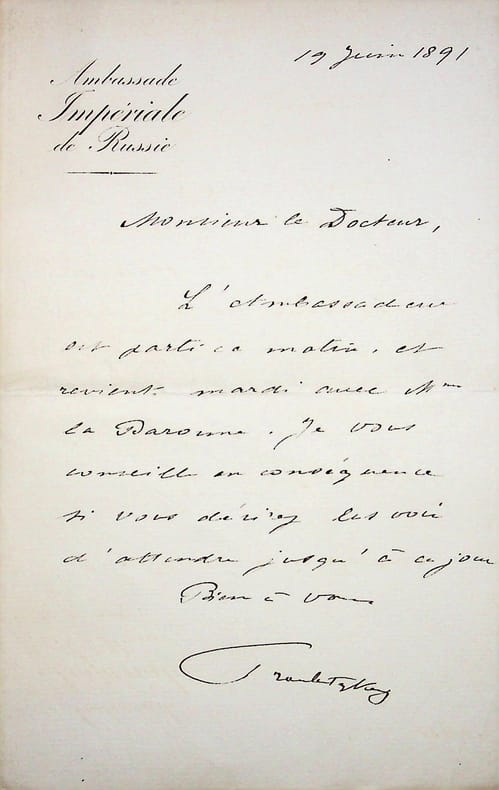 19 Juin 1891
Ambassade
Impériale
de Russie
Monsieur le Docteur,
L'Ambassadeur
est parti ce matin, et
revient mardi avec Mme
la Baronne. Je vous
conseille en conséquence
si vous désirez les voir
d'attendre jusqu'à ce jour
Bien à vous